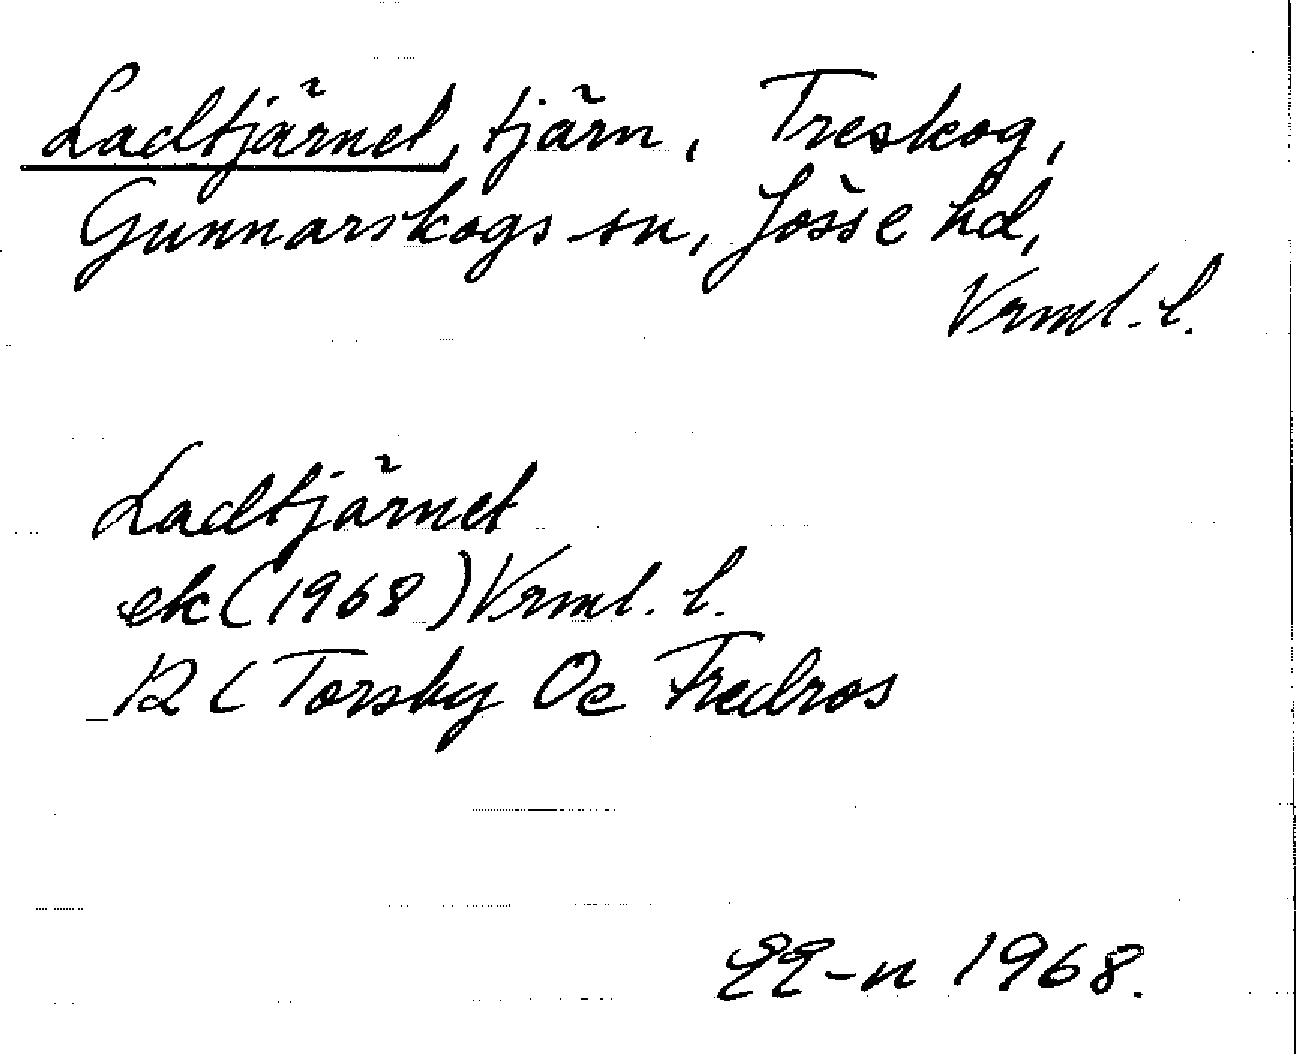 Ladtjärnet, tjärn, Treskog,
Gunnarskogs sn, Jösse hd,
Vrml. l.
Ladtjärnet
ek (1968) Vrml. l.
12 C Torsby Oc Fredros
EE-n 1968.